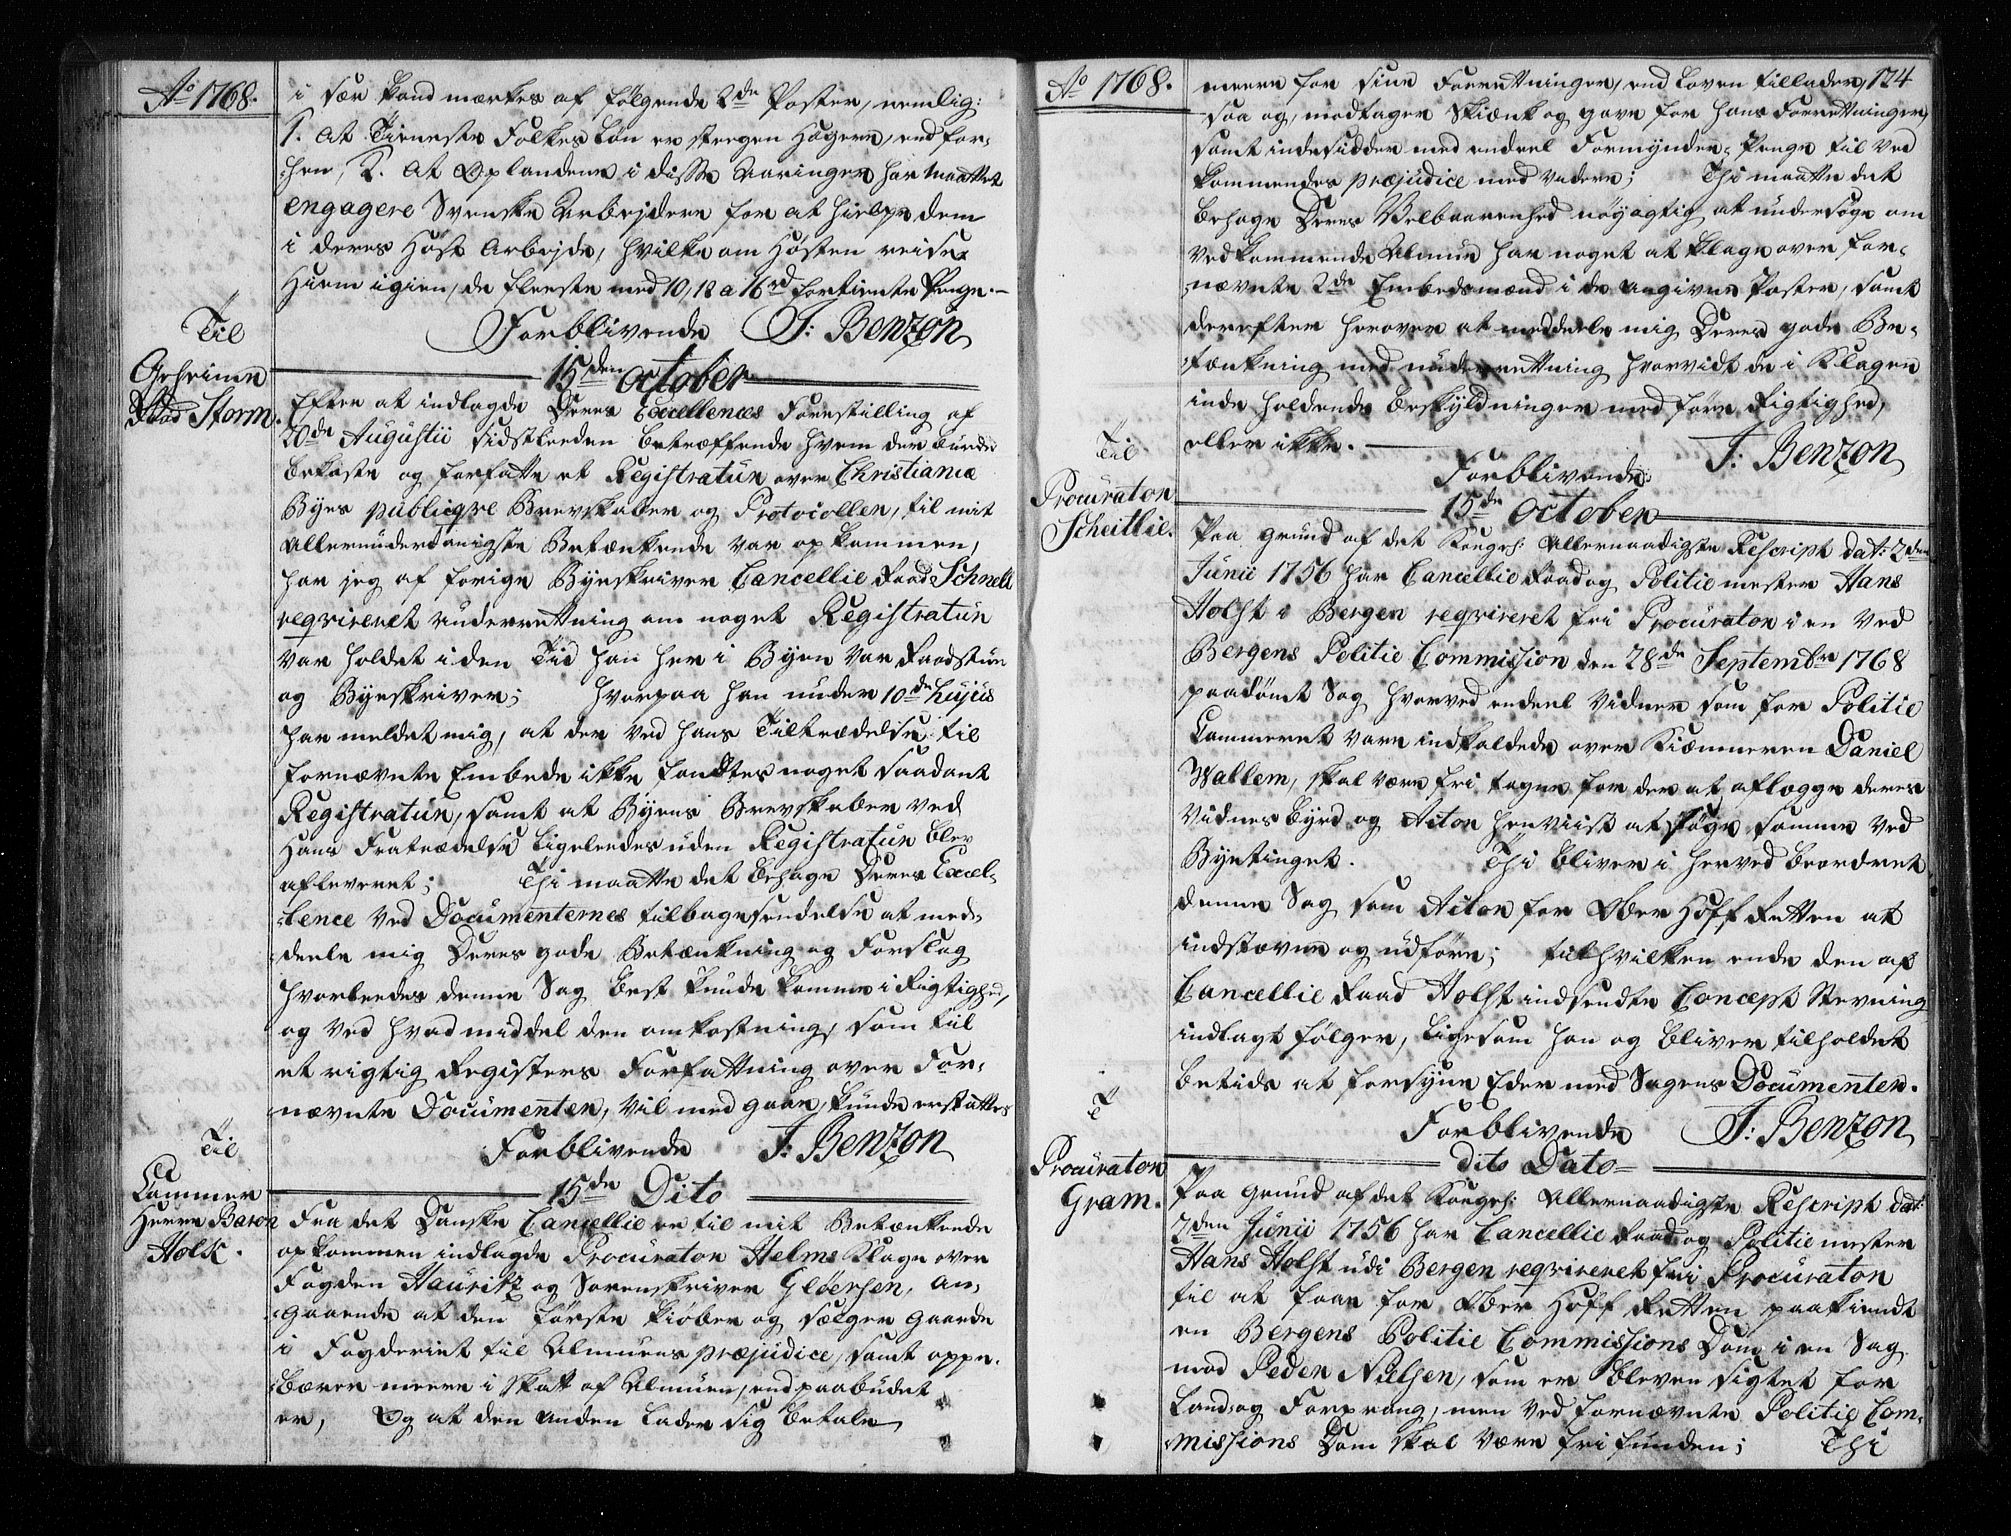 Ao 1768.
i sær kand mærkes af følgende 2de Poster, nemlig:
1. At Tieneste Folkes Løn er steegen høyere, end for-
hen, 2. At Oplændene i disse Aaringer har maattet
engagere Svenske Arbejdere for at hielpe dem
i deres Høst Arbejde, hvilke om Høsten reiser
hiem igien, de fleeste med 10, 12 a 16 rd fortiente Penge.
Forblivende J: Benzon
Til
Geheime
Raad Storm.
15den October
Efter at indlagde Deres Excellences Forestilling af
20de Augustii sidstleeden betreffende hvem der burde
bekoste og forfatte et Registratur over Christianiæ
Byes publiqve Brevskaber og Protocoller, til mit
allerunderdanigste Betænkende var opkommen,
har jeg af forige Byeskriver Cancellie Raad Schnell
reqvireret underretning om noget Registratur
var holdet i den Tid han her i Byen var Raadstue
og Byeskriver; hvorpaa han under 10de hujus
har meldet mig, at der ved hans Tiltrædelse til
fornævnte Embede ikke fandtes noget saadant
Registratur, samt at Byens Brevskaber ved
hans Fratrædelse ligeleedes uden Registratur blev
afleveret; Thi maatte det behage Deres Excel-
lence ved Documenternes tilbagesendelse at med-
deele mig Deres gode Betænkning og Forslag
hvorleedes denne Sag best kunde komme i Rigtighed,
og ved hvad middel den omkostning, som til
et rigtig Registers Forfatning over For-
nævnte Documenter, vil med gaae, kunde erstattes
Forblivende J: Benzon
Til
Cammer
Herre Baron
Holk.
15de Dito
Fra det Danske Cancellie er til mit Betænkende
opkommen indlagde Procurator Helms Klage over
Fogden Hauritz og Sorenskriver Gløersen, an-
gaaende at den første kiøber og sælger Gaarde
i Fogderiet til Almuens præjudice, samt oppe-
bærer meere i Skatt af Almuen, end paabudet
er, Og at den anden lader sig betale
Ao 1768.
174
meere for sine Forretninger, end Loven tillader,
saa og, modtager Skienk og gave for hans Forretninger,
samt indesidder med endeel Formynder-Penge til ved
kommendes præjudice med videre; Thi maatte det
behage Deres Velbaarenhed nøyagtig at undersøge om
vedkommende Almue har noget at klage over for-
nævnte 2de Embedsmænd i de angivne Poster, samt
derefter herover at meddeele mig Deres gode Be-
tænkning med underretning hvorvidt de i Klagen
inde holdende beskyldninger med føre Rigtighed,
eller ikke.
Forblivende J: Benzon
Til
Procurator
Scheitlie.
15de October
Paa grund af det Kongel: Allernaadigste Rescript dat: 2den
Junii 1756 har Cancellie Raad og Politie mester Hans
Holst i Bergen reqvireret fri Procurator i en ved
Bergens Politie Commission den 28de Septembr 1768
paadømt Sag hvorved endeel Vidner som for Politie
Cammeret vare indkaldede over Kiæmneren Daniel
Wallem, skal være fri tagne for der at aflægge deres
Vidnesbyrd og Acton henviist at søge samme ved
Byetinget. Thi bliver i herved beordret
denne Sag som Actor for Ober Hoff Retten at
indstævne og udføre; til hvilken ende den af
Cancellie Raad Holst indsendte Concept Stevning
indlagt følger, ligesom han og bliver tilholdet
betids at forsyne Eder med Sagens Documenter.
Forblivende J: Benzon
T
Procurator
Gram.
dito Dato
Paa grund af det Kongel: Allernaadigste Rescript dat:
2den Junii 1756 har Cancellie Raad og Politie mester
Hans Holst udi Bergen reqvireret fri Procurator
til at faae for Ober Hoff Retten paakiendt
en Bergens Politie Commissions Dom i en Sag
mod Peder Nielsen, som er bleven sigtet for
Landog Forprang, men ved fornævnte Politie Com-
missions Dom skal være fri funden; Thi